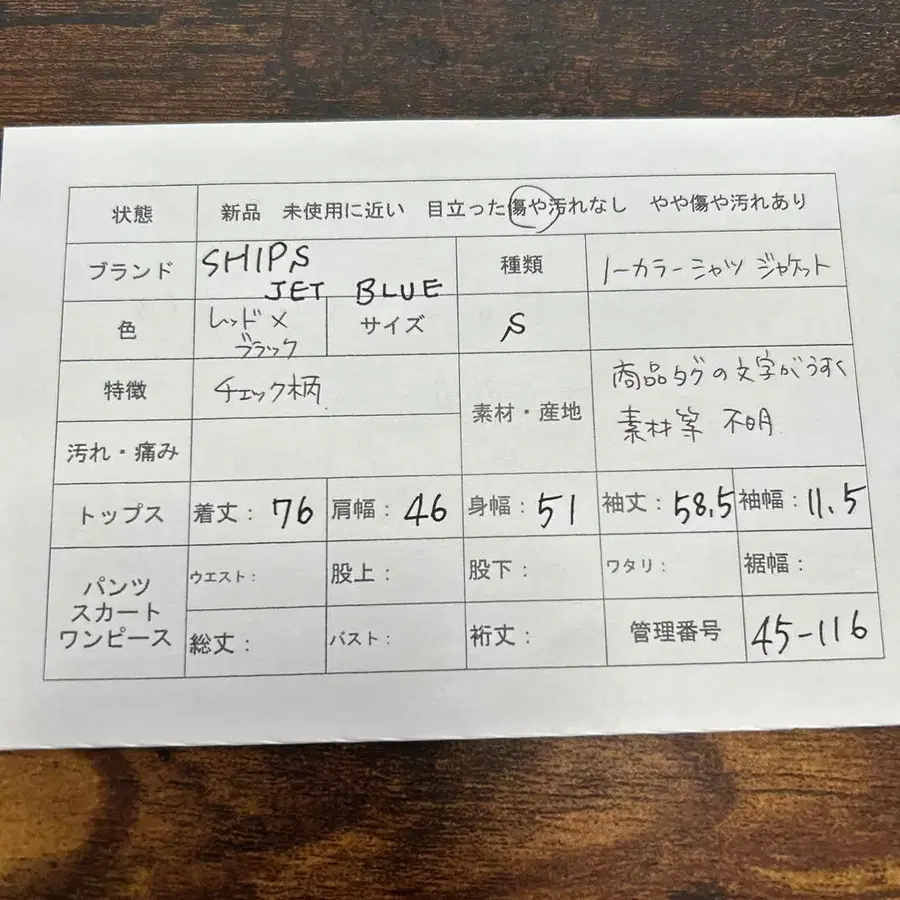 状態 新品 未使用に近い 目立った傷や汚れなし やや傷や汚れあり
ブランド SHIPS
JET BLUE
種類 ノーカラーシャツ ジャケット
色 レッド×
ブラック
サイズ S
特徴 チェック柄
素材・産地 商品タグの文字がうすく
素材等 不明
汚れ・痛み
トップス 着丈: 76 肩幅: 46 身幅: 51 袖丈: 58.5 袖幅: 11.5
パンツ
スカート
ワンピース
ウエスト: 股上: 股下: ワタリ: 裾幅:
総丈: バスト: 裄丈: 管理番号 45-116